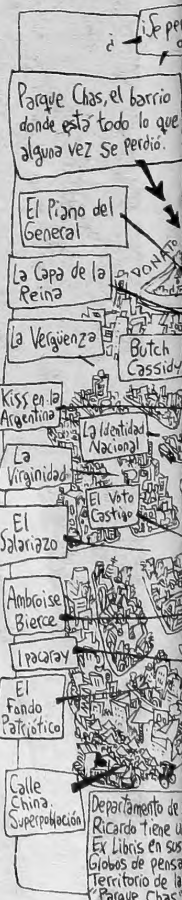 ¿
¡Se per
Parque Chas, el barrio
donde está todo lo que
alguna vez se perdió.
El Piano del
General
DONATO
La Capa de la
Reina
La Vergüenza
Butch
Cassidy
Kiss en la
Argentina
La Identidad
Nacional
La
Virginidad
El Voto
Castigo
El
Salariazo
Ambroise
Bierce
Ipacaray
El
Fondo
Patriótico
Calle
China.
Superpoblación
Departamento de
Ricardo tiene u
Ex Libris en sus
Globos de pensa
Territorio de la
"Parque Chas"